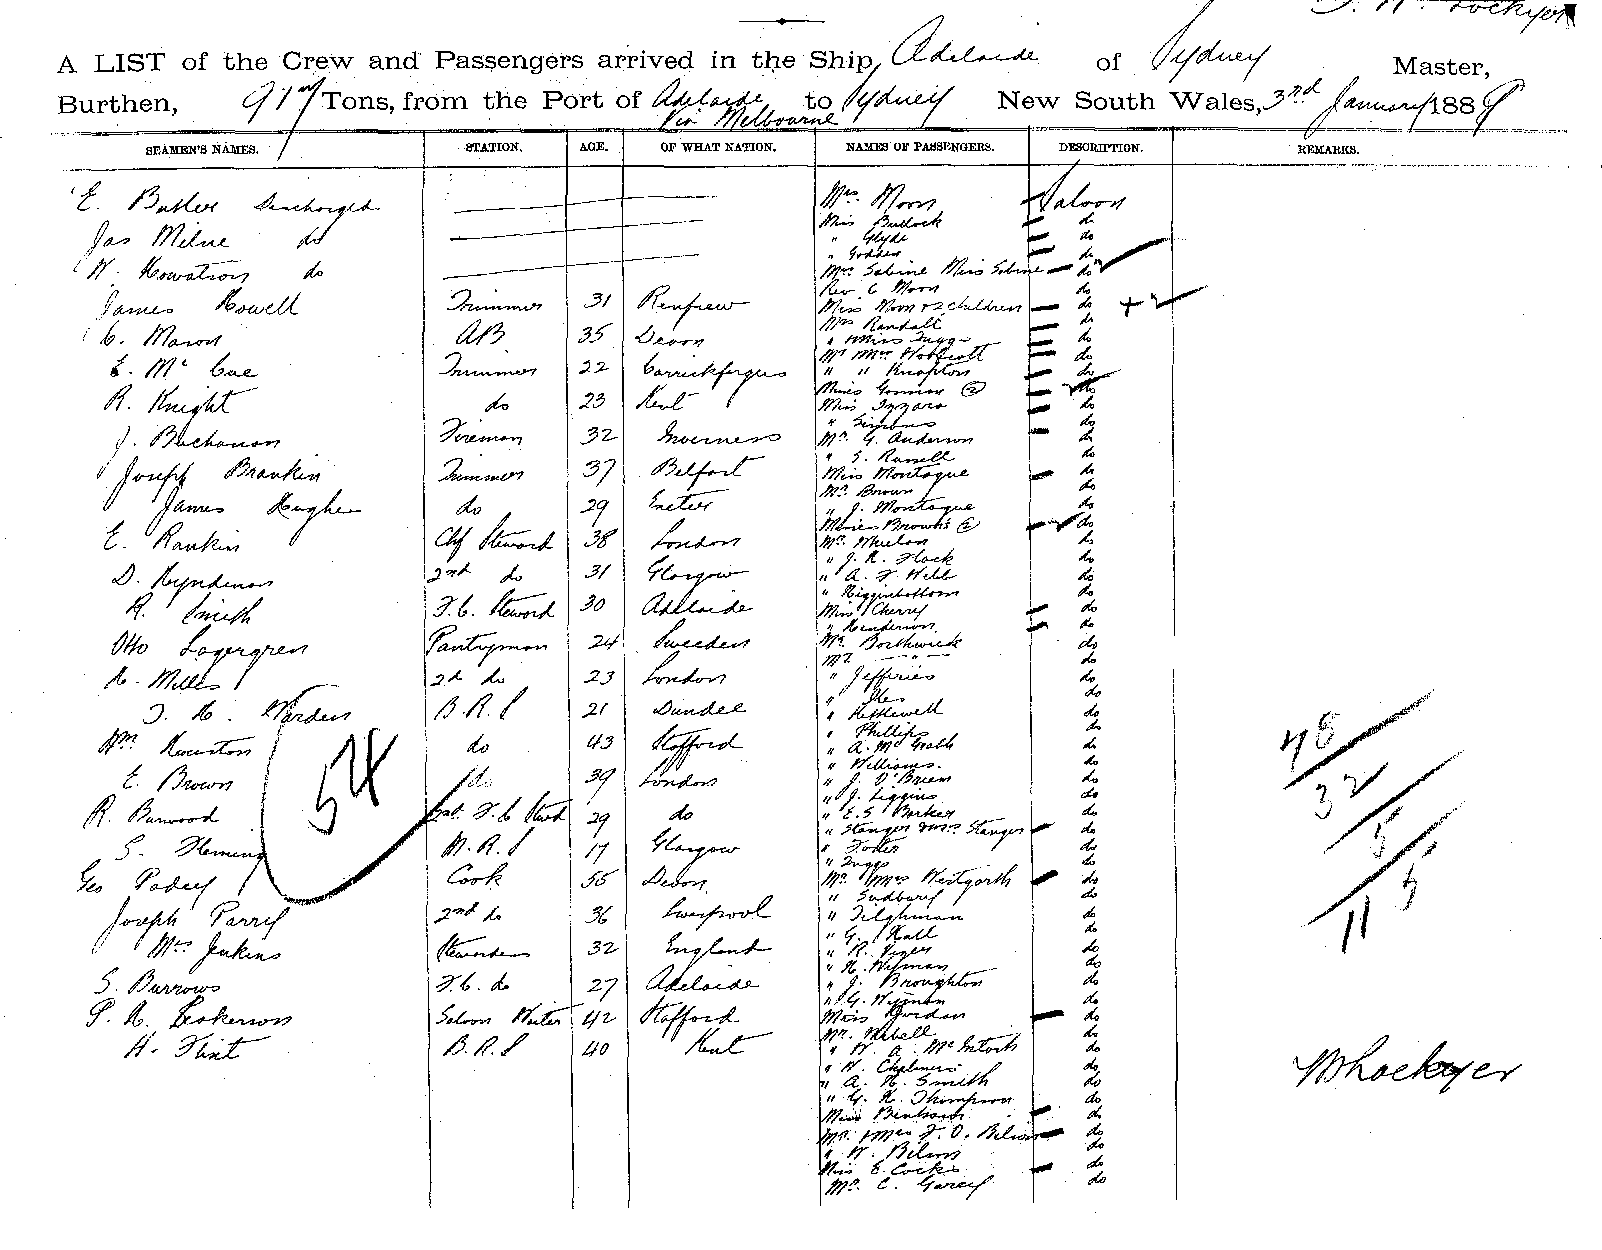 A LIST of the Crew and Passengers arrived in the Ship, Adelaide of Sydney Master,
Burthen, 917 Tons, from the Port of Adelaide to Sydney New South Wales, 3rd January 1889
Via Melbourne
SEAMEN'S NAMES. STATION. AGE. OF WHAT NATION. NAMES OF PASSENGERS. DESCRIPTION. REMARKS.
E. Butler Discharged
Jas Milne do
W. Howatson do
James Howell Trimmer 31 Renfrew
C. Mason AB 35 Devon
E. Mc Cue Trimmer 22 Carrickfergus
R. Knight do 23 Kent
J. Buchanan Fireman 32 Inverness
Joseph Brankin Trimmer 37 Belfast
James Hughes do 29 Exeter
E. Rankin Chf Steward 38 London
D. 2nd do 31 Glasgow
R. Smith F.C. Steward 30 Adelaide
Otto Lagergren Pantryman 24 Sweeden
H. Mills 2d do 23 London
J. H. Worden B.R.S 21 Dundee
Wm Houston do 43 Stafford
E. Brown do 39 London
R. Burwood F.C. Stwd 29 do
S. Fleming M.R.S 17 Glasgow
Geo Padey Cook 55 Devon
Joseph Parry 2nd do 36 Liverpool
Mrs Jenkins Stewardess 32 England
S. Burrows F.C. do 27 Adelaide
P. H. Saloon Waiter 42 Stafford
H. Flint B.R.S 40 Kent
54
Mrs Moon Saloon
Miss Bullock do
" Glyde do
" Godden do
Mrs Sabine Miss Sabine do
Rev C Moon do
Miss Moon + 2 children do + 2
Mrs Randall do
" Miss do
Mr Mrs Woolcott do
" " Knapton do
Misses 2 do
Miss do
" Simmons do
Mr. G. Anderson do
" S. Russell do
Miss Montague do
Mr. Brown do
" J. Montague do
Misses Browns 2 do
Mr. Whelan do
" J. R. Flack do
" A. F. Webb do
" Higginbottom do
Miss Cherry do
" Henderson do
Mr. Borthwick do
Mr. — " — do
" Jefferies do
" Iles do
" Kettlewell do
" Phillips do
" A. Mc Grath do
" Williams. do
" J. O'Brien do
" J. Liggins do
" E. S. Barker do
" Stanger Mrs Stanger do
" Foster do
" do
Mr. Mrs Westgarth do
" Sudbury do
" Tilghman do
" G. Hall do
" R. do
" H. Wyman do
" J. Broughton do
" G. Wyman do
Miss Jordan do
Mr. do
" W. A. Mc Intosh do
" W. Chalmers do
" A. H. Smith do
" G. H. Thompson do
Miss Benham do
Mr. Mrs F. O. do
" W. do
Miss E. Cocks do
Mr. C. Garey do
48
32
5
5
11